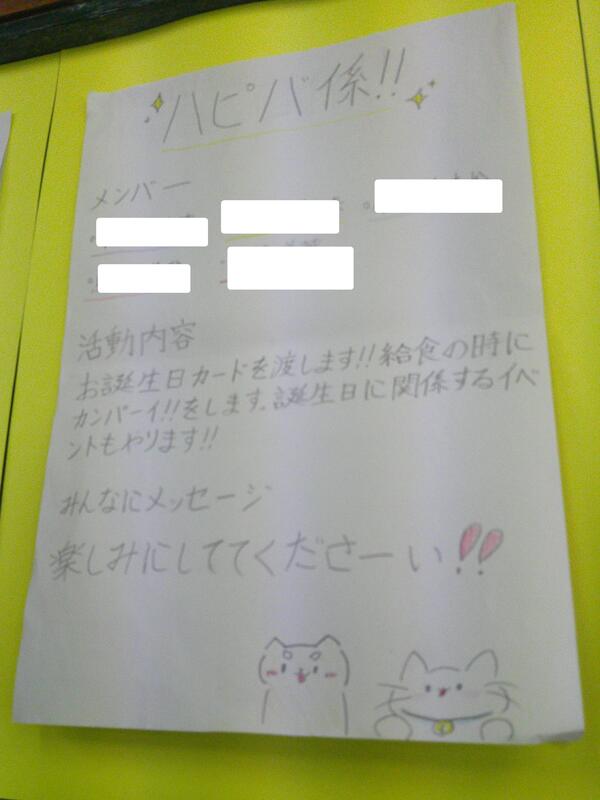 ハピバ係!!
メンバー
活動内容
お誕生日カードを渡します!!給食の時に
カンパーイ!!をします。誕生日に関係するイベ
ントもやります!!
みんなにメッセージ
楽しみにしててくださーい!!